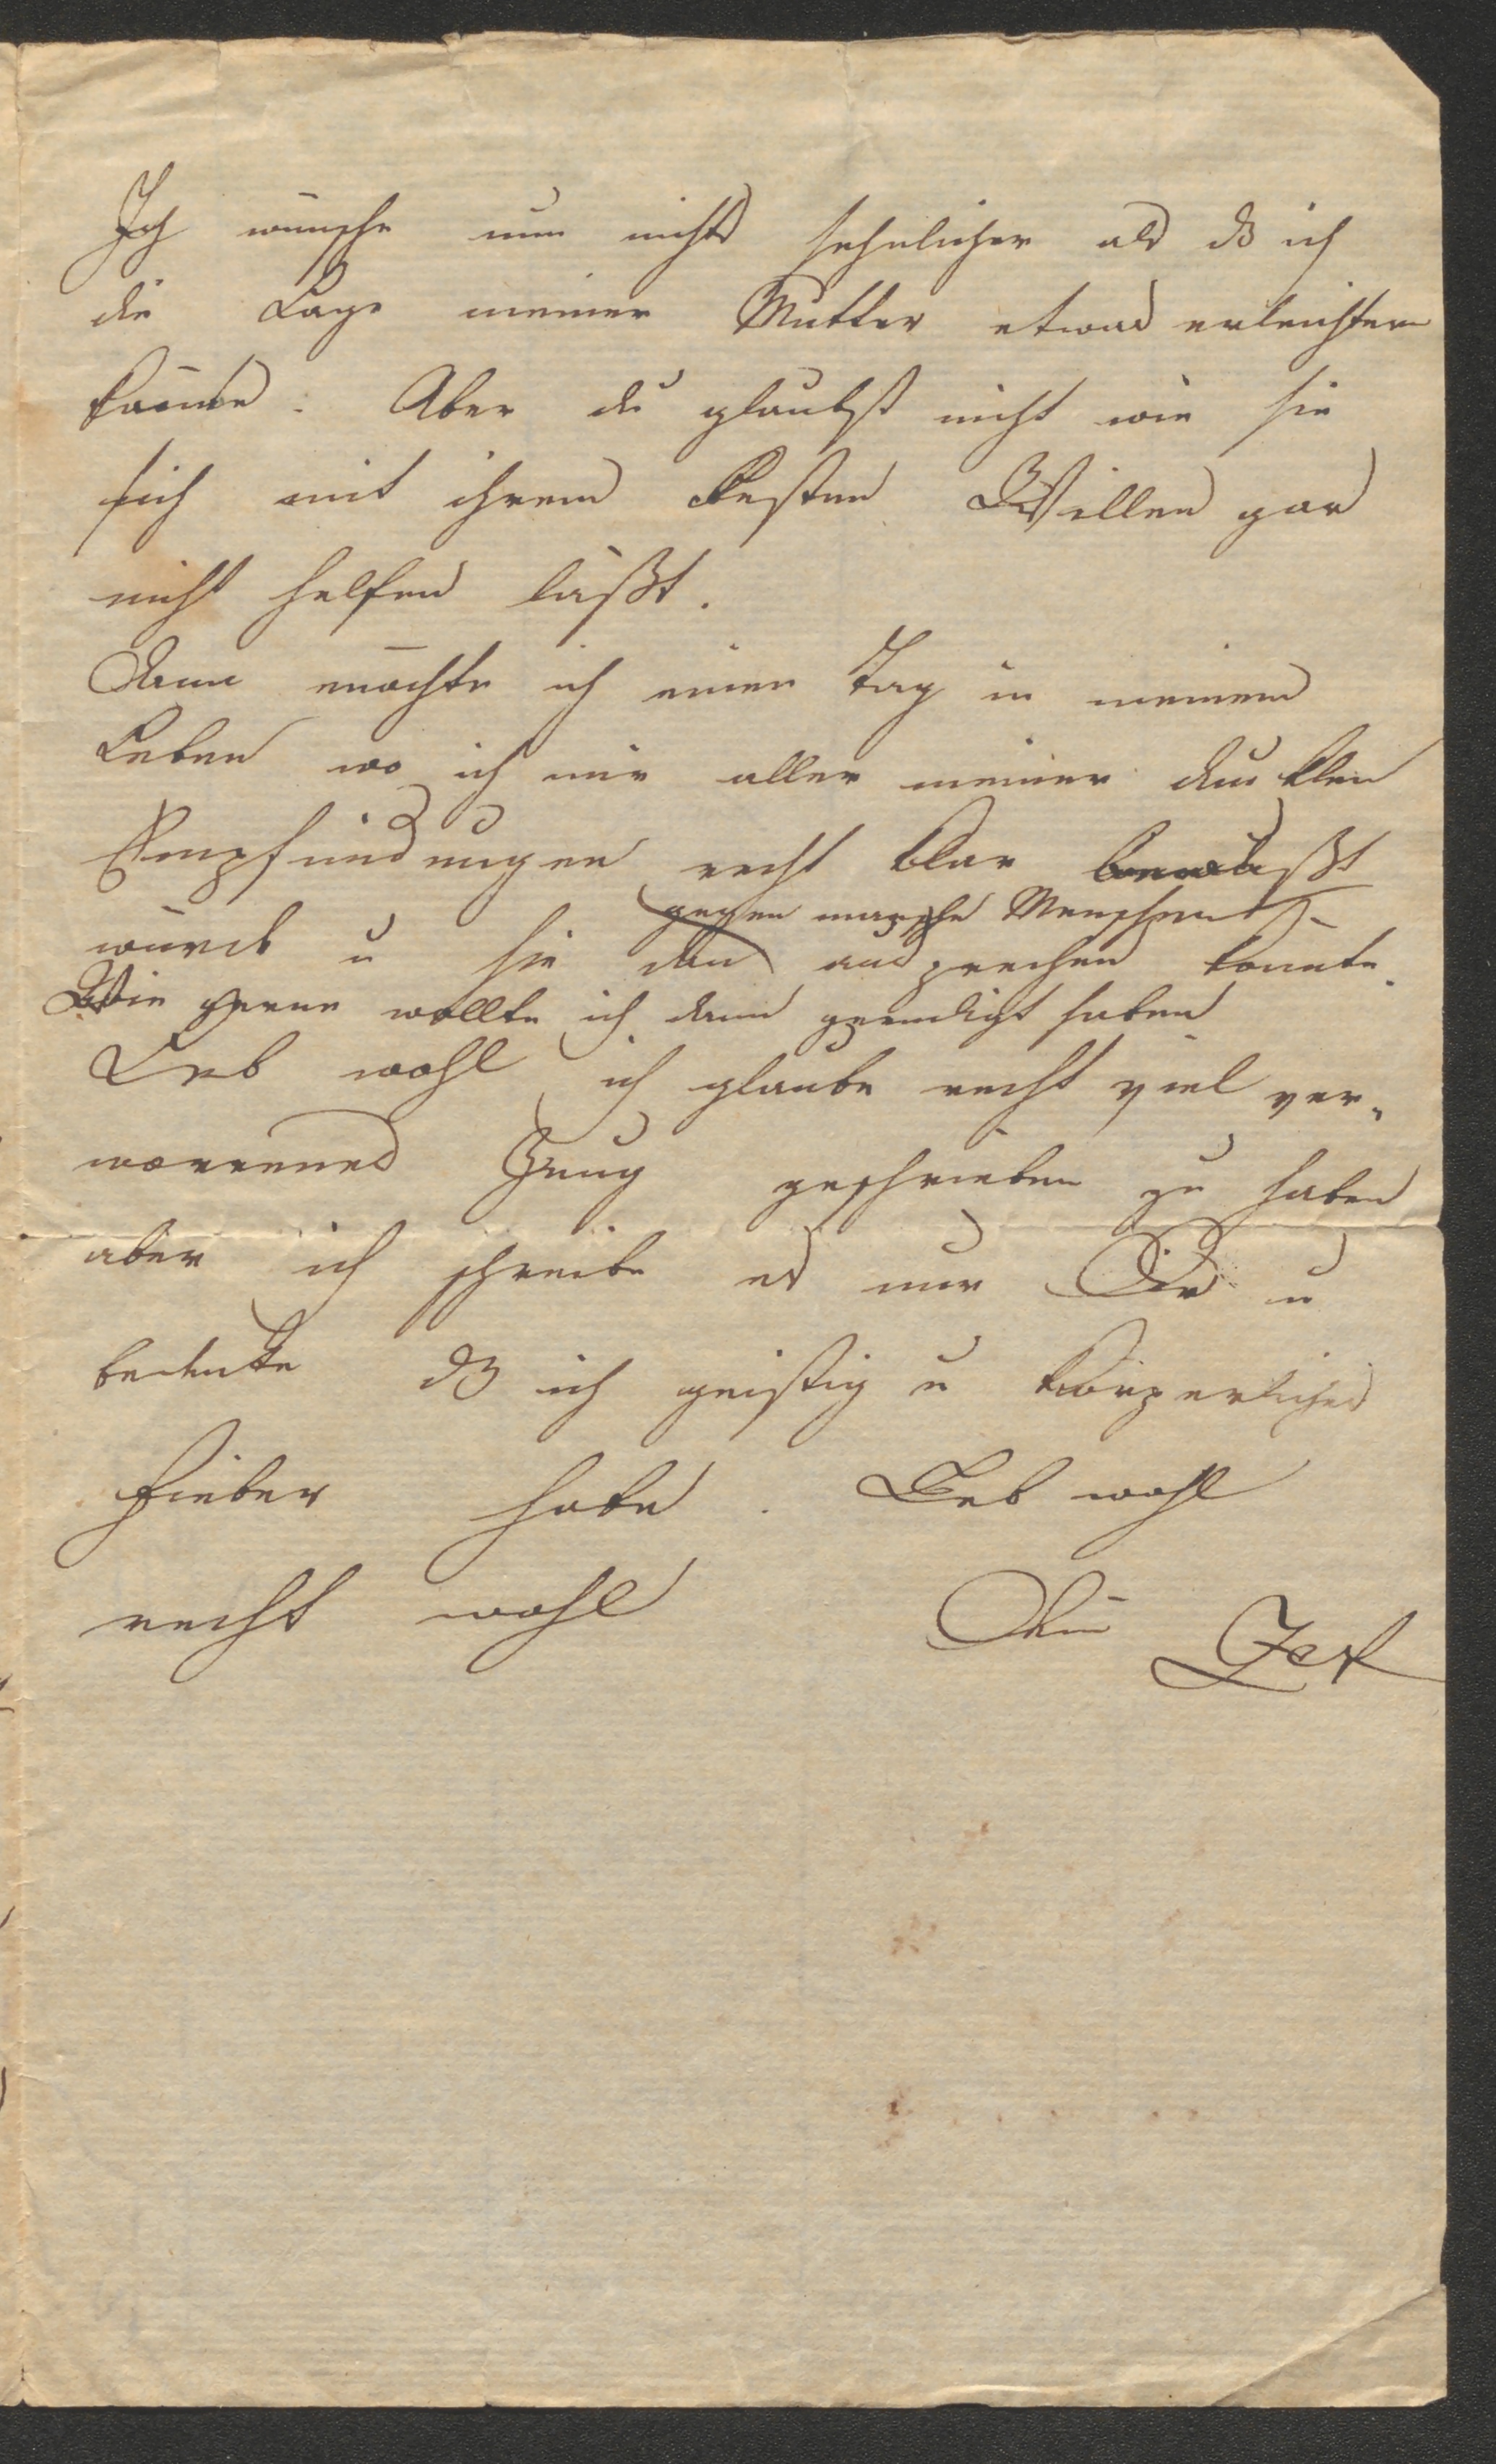 Ich wünsche nun nichts sehnlicher als dß ich
die Lage meiner Mutter etwas erleichtern
könnte. Aber du glaubst nicht wie sie
sich mit ihrem besten Willen gar
nicht helfen läßt.
Dann möchte ich einen Tag in meinem
Leben wo ich mir aller meiner dunklen
Empfindungen recht klar bewußt
gegen manche Menschen
würde u sie dan aussprechen könnte.
Wie gerne wollte ich dann geendigt haben
Leb wohl ich glaube recht viel ver-
worrenes Zeug geschrieben zu haben
aber ich schreibe es nur Dir u
bedenke dß ich geistig u körperliches
Fieber habe. Leb wohl
recht wohl Dein